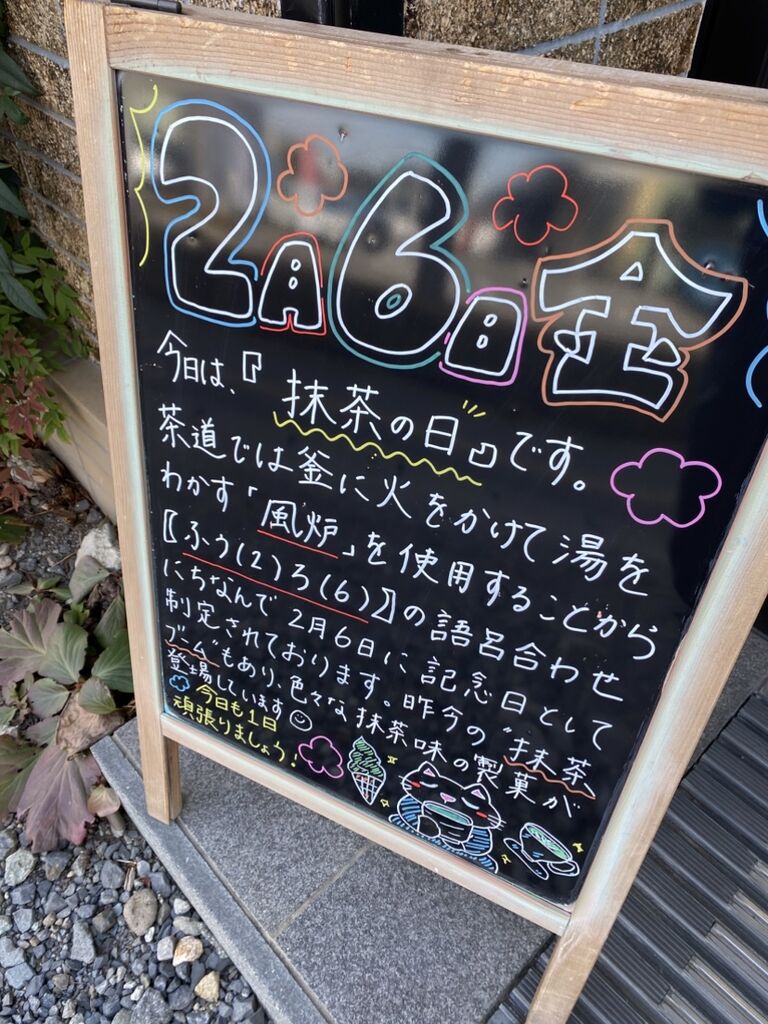 2月6日 金
今日は、『抹茶の日』です。
茶道では釜に火をかけて湯を
わかす「風炉」を使用することから
【ふう(2)ろ(6)】の語呂合わせ
にちなんで2月6日に記念日として
制定されております。昨今の"抹茶
ブーム"もあり、色々な抹茶味の製菓が
登場しています
今日も1日
頑張りましょう!